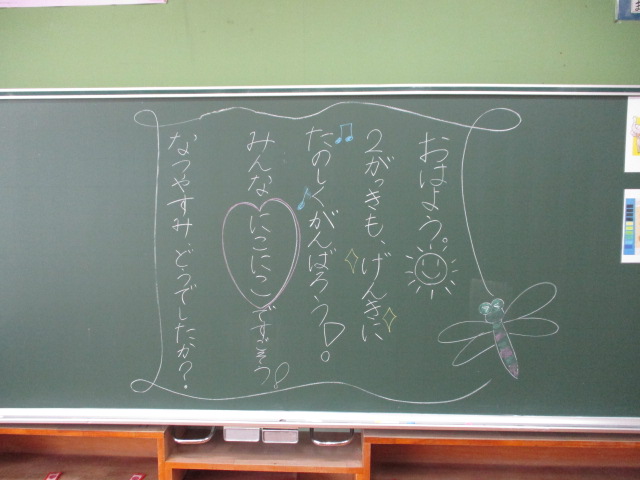 おはよう。
2がっきも、げんきに
たのしくがんばろう!
みんなにこにこですごそう!
なつやすみ、どうでしたか?